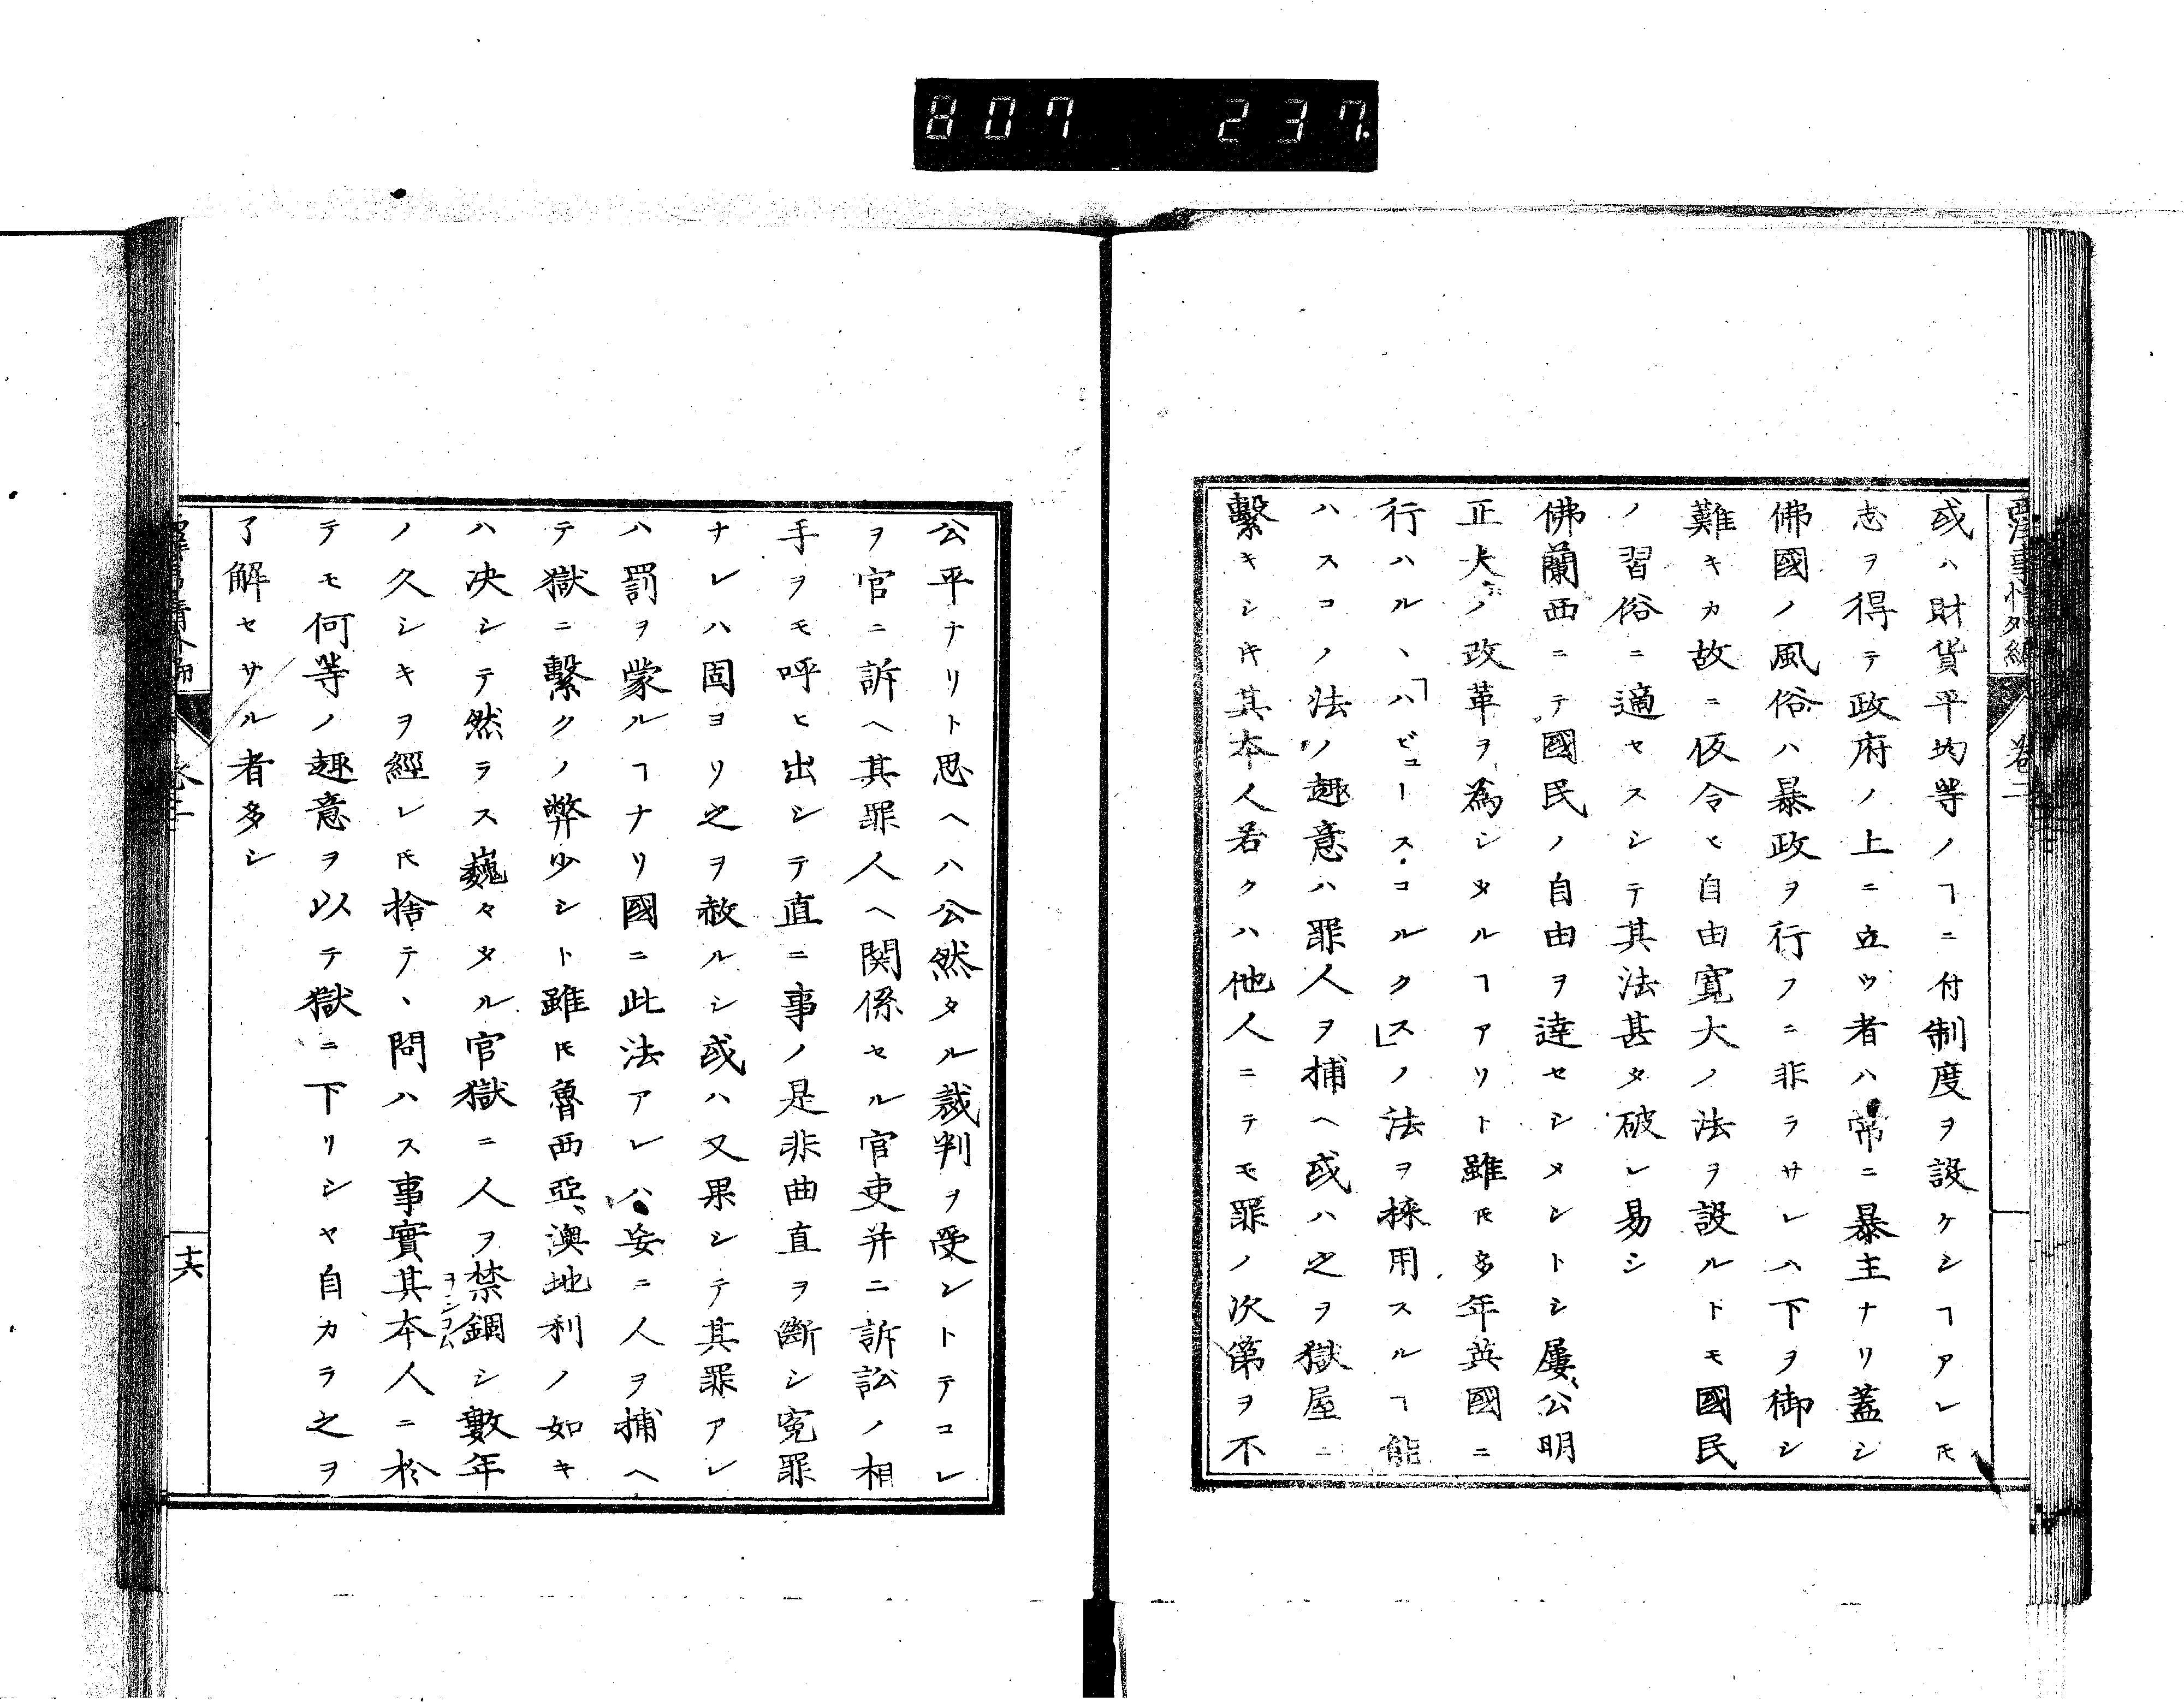 807 237.
西洋事情外編 巻二
或ハ財貨平均等ノヿニ付制度ヲ設ケシヿアレ𪜈
志ヲ得テ政府ノ上ニ立ツ者ハ常ニ暴主ナリ蓋シ
佛國ノ風俗ハ暴政ヲ行フニ非ラサレハ下ヲ御シ
難キカ故ニ仮令ヒ自由寛大ノ法ヲ設ルトモ國民
ノ習俗ニ適セスシテ其法甚タ破レ易シ
佛蘭西ニテ國民ノ自由ヲ達セシメントシ屢公明
正大ノ改革ヲ為シタルヿアリト雖𪜈多年英國ニ
行ハルヽ「ハビユースコルクス」ノ法ヲ採用スルヿ能
ハスコノ法ノ趣意ハ罪人ヲ捕ヘ或ハ之ヲ獄屋ニ
繫キシ𪜈其本人若クハ他人ニテモ罪ノ次第ヲ不
公平ナリト思ヘハ公然タル裁判ヲ受ントテコレ
ヲ官ニ訴ヘ其罪人ヘ関係セル官吏并ニ訴訟ノ相
手ヲモ呼ヒ出シテ直ニ事ノ是非曲直ヲ斷シ寃罪
ナレハ固ヨリ之ヲ赦ルシ或ハ又果シテ其罪アレ
ハ罰ヲ蒙ルヿナリ國ニ此法アレハ妄ニ人ヲ捕ヘ
テ獄ニ繫クノ弊少シト雖𪜈魯西亞澳地利ノ如キ
ハ决シテ然ラス巍々タル官獄ニ人ヲ禁錮シ數年
ヲシコム
ノ久シキヲ經レ𪜈捨テヽ問ハス事實其本人ニ於
テモ何等ノ趣意ヲ以テ獄ニ下リシヤ自カラ之ヲ
了解セサル者多シ
十六